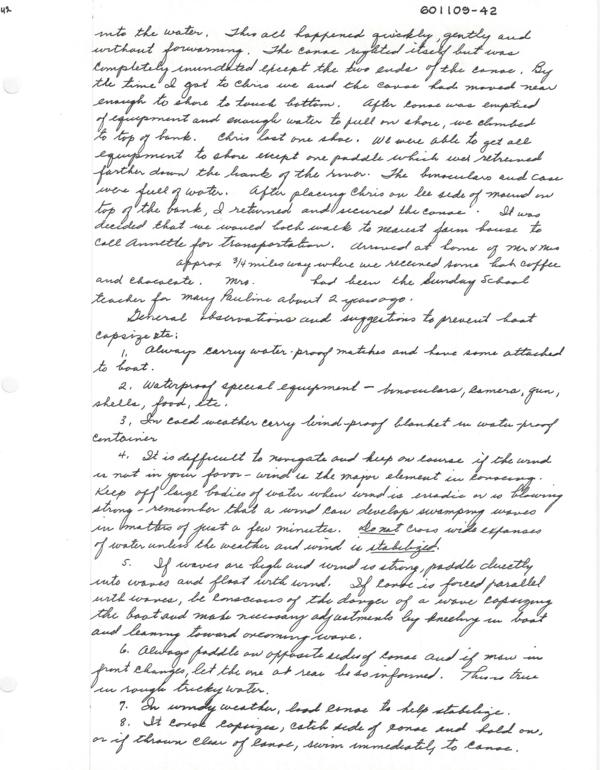 42
601109-42
into the water. This all happened quickly, gently and
without forwarning. The canoe righted itself but was
completely inundated except the two ends of the canoe. By
the time I got to Chris we and the canoe had moved near
enough to shore to touch bottom. After canoe was emptied
of equipment and enough water to pull on shore, we climbed
to top of bank. Chris lost one shoe. We were able to get all
equipment to shore except one paddle which was retrieved
farther down the bank of the river. The binoculars and case
were full of water. After placing Chris on lee side of mound on
top of the bank, I returned and secured the canoe. It was
decided that we would both walk to nearest farm house to
call Annette for transportation. Arrived at home of Mr & Mrs
approx 3/4 miles way where we received some hot coffee
and chocolate. Mrs. had been the Sunday School
teacher for Mary Pauline about 2 years ago.
General observations and suggestions to prevent boat
capsize etc:
1. Always carry water-proof matches and have some attached
to boat.
2. Waterproof special equipment - binoculars, camera, gun,
shells, food, etc.
3, In cold weather carry wind-proof blanket in water-proof
container
4. It is difficult to navigate and keep on course if the wind
is not in your favor - wind is the major element in canoeing.
Keep off large bodies of water when wind is erradic or is blowing
strong - remember that a wind can develop swamping waves
in matters of just a few minutes. Do not cross wide expanses
of water unless the weather and wind is stabilized.
5. If waves are high and wind is strong, paddle directly
into waves and float with wind. If canoe is forced parallel
with waves, be conscious of the danger of a wave capsizing
the boat and make necessary adjustments by kneeling in boat
and leaning toward oncoming wave.
6. Always paddle on opposite sides of canoe and if man in
front changes, let the one at rear be so informed. This is true
in rough tricky water.
7. In windy weather, load canoe to help stabilize.
8. If canoe capsizes, catch side of canoe and hold on,
or if thrown clear of canoe, swim immediately to canoe.